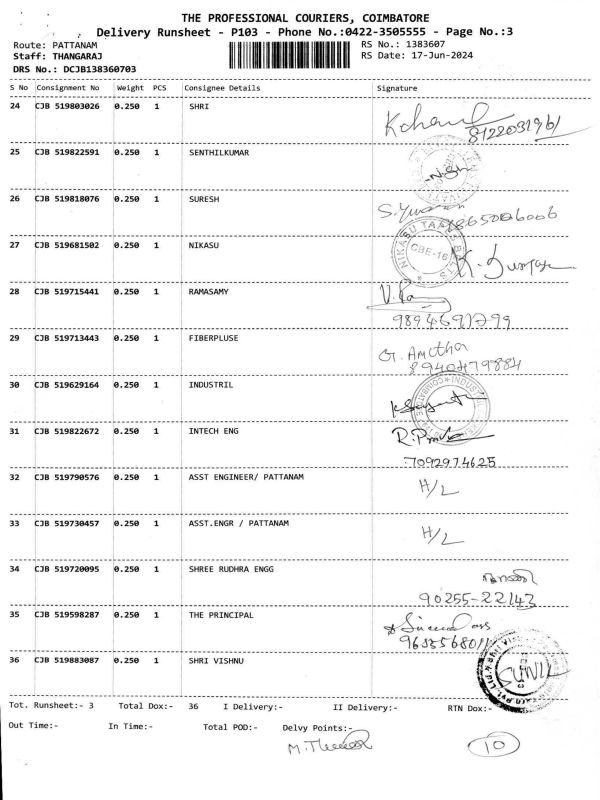 THE PROFESSIONAL COURIERS, COIMBATORE
Delivery Runsheet - P103 - Phone No.:0422-3505555 - Page No.:3
Route: PATTANAM RS No.: 1383607
Staff: THANGARAJ RS Date: 17-Jun-2024
DRS No.: DCJB138360703
S No Consignment No Weight PCS Consignee Details Signature
24 CJB 519803026 0.250 1 SHRI
8122031961
25 CJB 519822591 0.250 1 SENTHILKUMAR
26 CJB 519818076 0.250 1 SURESH
27 CJB 519681502 0.250 1 NIKASU
NIKASU
CBE-16
K. Kumar
28 CJB 519715441 0.250 1 RAMASAMY
9894691799
29 CJB 519713443 0.250 1 FIBERPLUSE
G. Amutha
8940479884
30 CJB 519629164 0.250 1 INDUSTRIL
31 CJB 519822672 0.250 1 INTECH ENG
7092974625
32 CJB 519790576 0.250 1 ASST ENGINEER/ PATTANAM H/L
33 CJB 519730457 0.250 1 ASST.ENGR / PATTANAM H/L
34 CJB 519720095 0.250 1 SHREE RUDHRA ENGG
90255-22143
35 CJB 519598287 0.250 1 THE PRINCIPAL
9655568011
36 CJB 519883087 0.250 1 SHRI VISHNU
SUNIL
Tot. Runsheet:- 3 Total Dox:- 36 I Delivery:- II Delivery:- RTN Dox:-
Out Time:- In Time:- Total POD:- Delvy Points:-
10